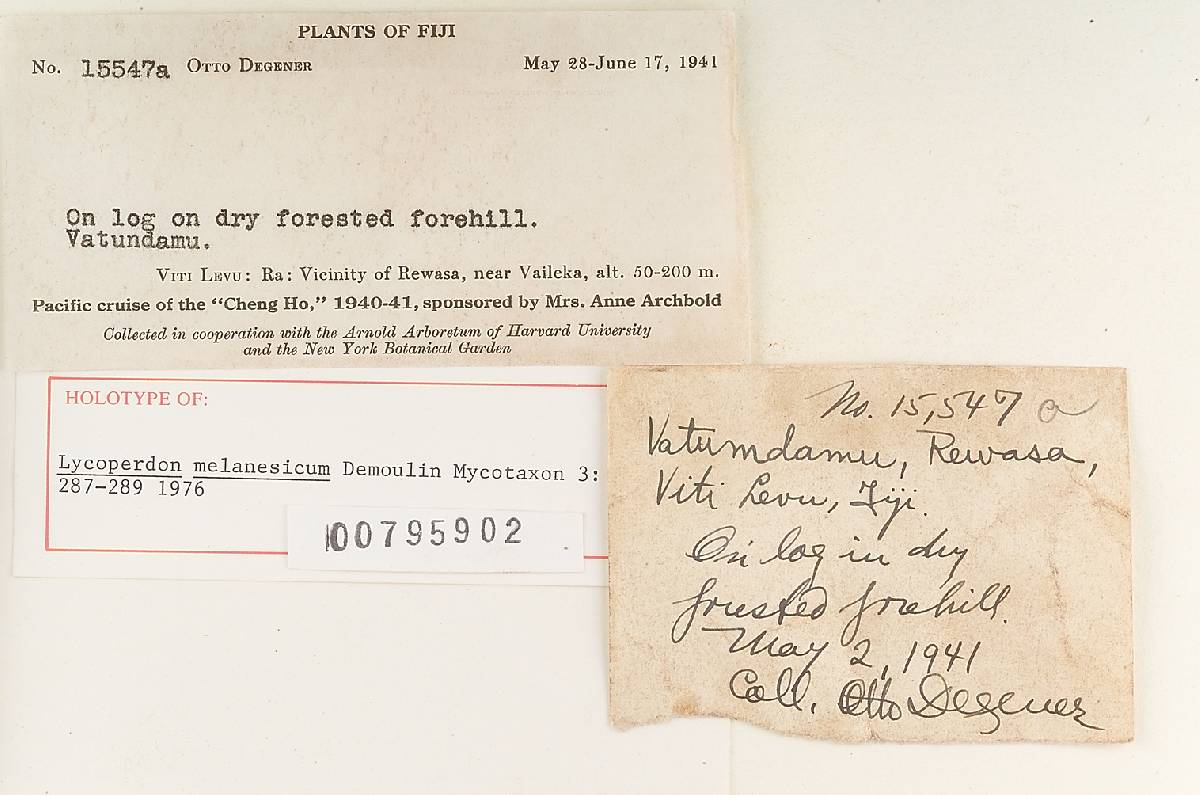 PLANTS OF FIJI
No. 15547a OTTO DEGENER May 28-June 17, 1941
On log on dry forested forehill.
Vatundamu.
VITI LEVU: Ra: Vicinity of Rewasa, near Vaileka, alt. 50-200 m.
Pacific cruise of the "Cheng Ho," 1940-41, sponsored by Mrs. Anne Archbold
Collected in cooperation with the Arnold Arboretum of Harvard University
and the New York Botanical Garden
HOLOTYPE OF:
Lycoperdon melanesicum Demoulin Mycotaxon 3:
287-289 1976
00795902
No. 15,547 a
Vatumdamu, Rewasa,
Viti Levu, Fiji.
On log in dry
forested forehill.
May 2, 1941
Coll. Otto Degener